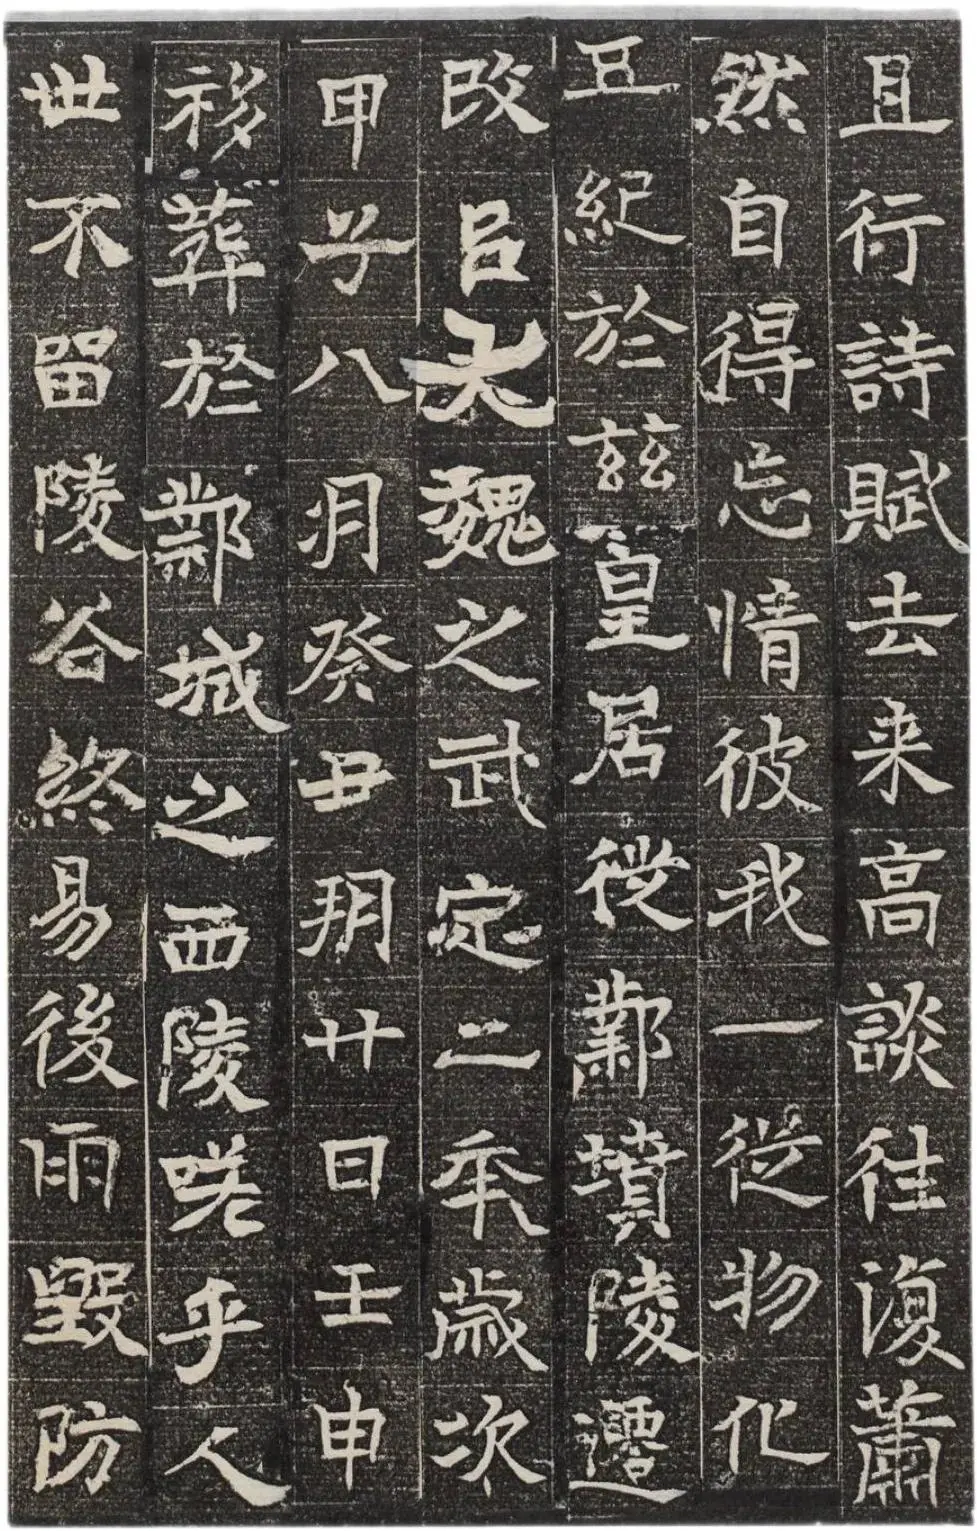 且行詩賦去来高談往復蕭
然自得忘情彼我一從物化
五紀於玆皇居徙鄴墳陵遷
改㠯大魏之武定二年歲次
甲子八月癸丑朔廿日壬申
移葬於鄴城之西陵嗟乎人
世不留陵谷終易後雨毀防